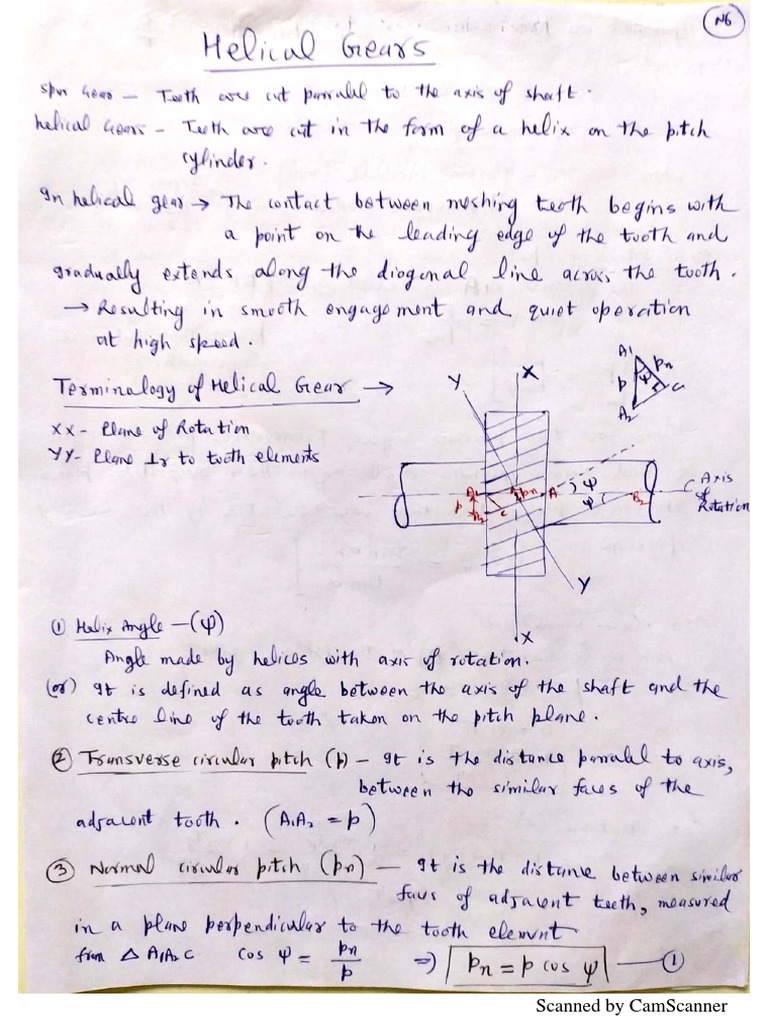 N6
Helical Gears
Spur Gear – Teeth are cut parallel to the axis of shaft.
helical Gears – Teeth are cut in the form of a helix on the pitch
cylinder.
In helical gear → The contact between meshing teeth begins with
a point on the leading edge of the tooth and
gradually extends along the diogonal line across the tooth.
→ Resulting in smooth engagement and quiet operation
at high speed.
Terminalogy of Helical Gear →
XX- Plane of Rotation
YY- Plane ⊥r to tooth elements
A1
p
Pn
ψ
C
A2
Y
X
A1
p
A2
C
Pn
A
ψ
ψ
B2
Axis
of
Rotation
Y
X
① Helix Angle – (ψ)
Angle made by helices with axis of rotation.
(or) It is defined as angle between the axis of the shaft and the
centre line of the tooth taken on the pitch plane.
② Transverse circular pitch (p) – It is the distance parralel to axis,
between the similar faces of the
adjacent tooth. (A1A2 = p)
③ Normal circular pitch (pn) – It is the distance between similar
faces of adjacent teeth, measured
in a plane perpendicular to the tooth element
from △ A1A2C cos ψ = pn/p ⇒ pn = p cos ψ — ①
Scanned by CamScanner